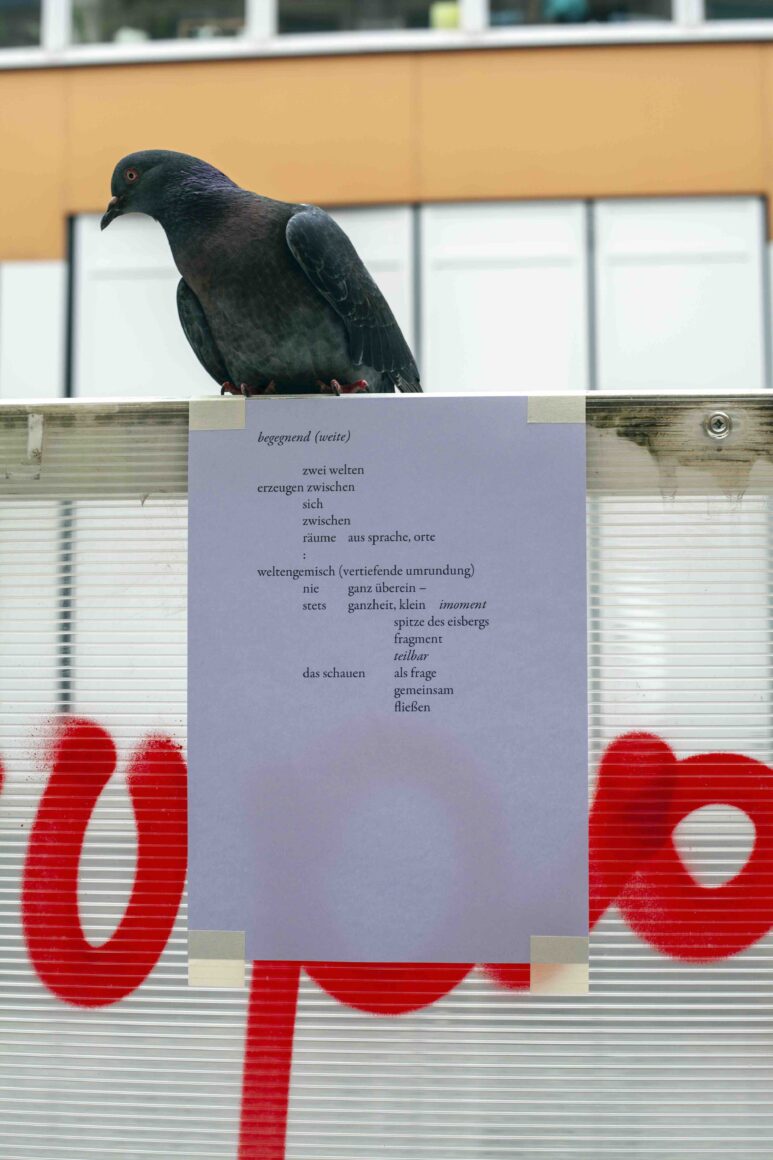 begegnend (weite)
zwei welten
erzeugen zwischen
sich
zwischen
räume aus sprache, orte
:
weltengemisch (vertiefende umrundung)
nie ganz überein –
stets ganzheit, klein imoment
spitze des eisbergs
fragment
teilbar
das schauen als frage
gemeinsam
fließen